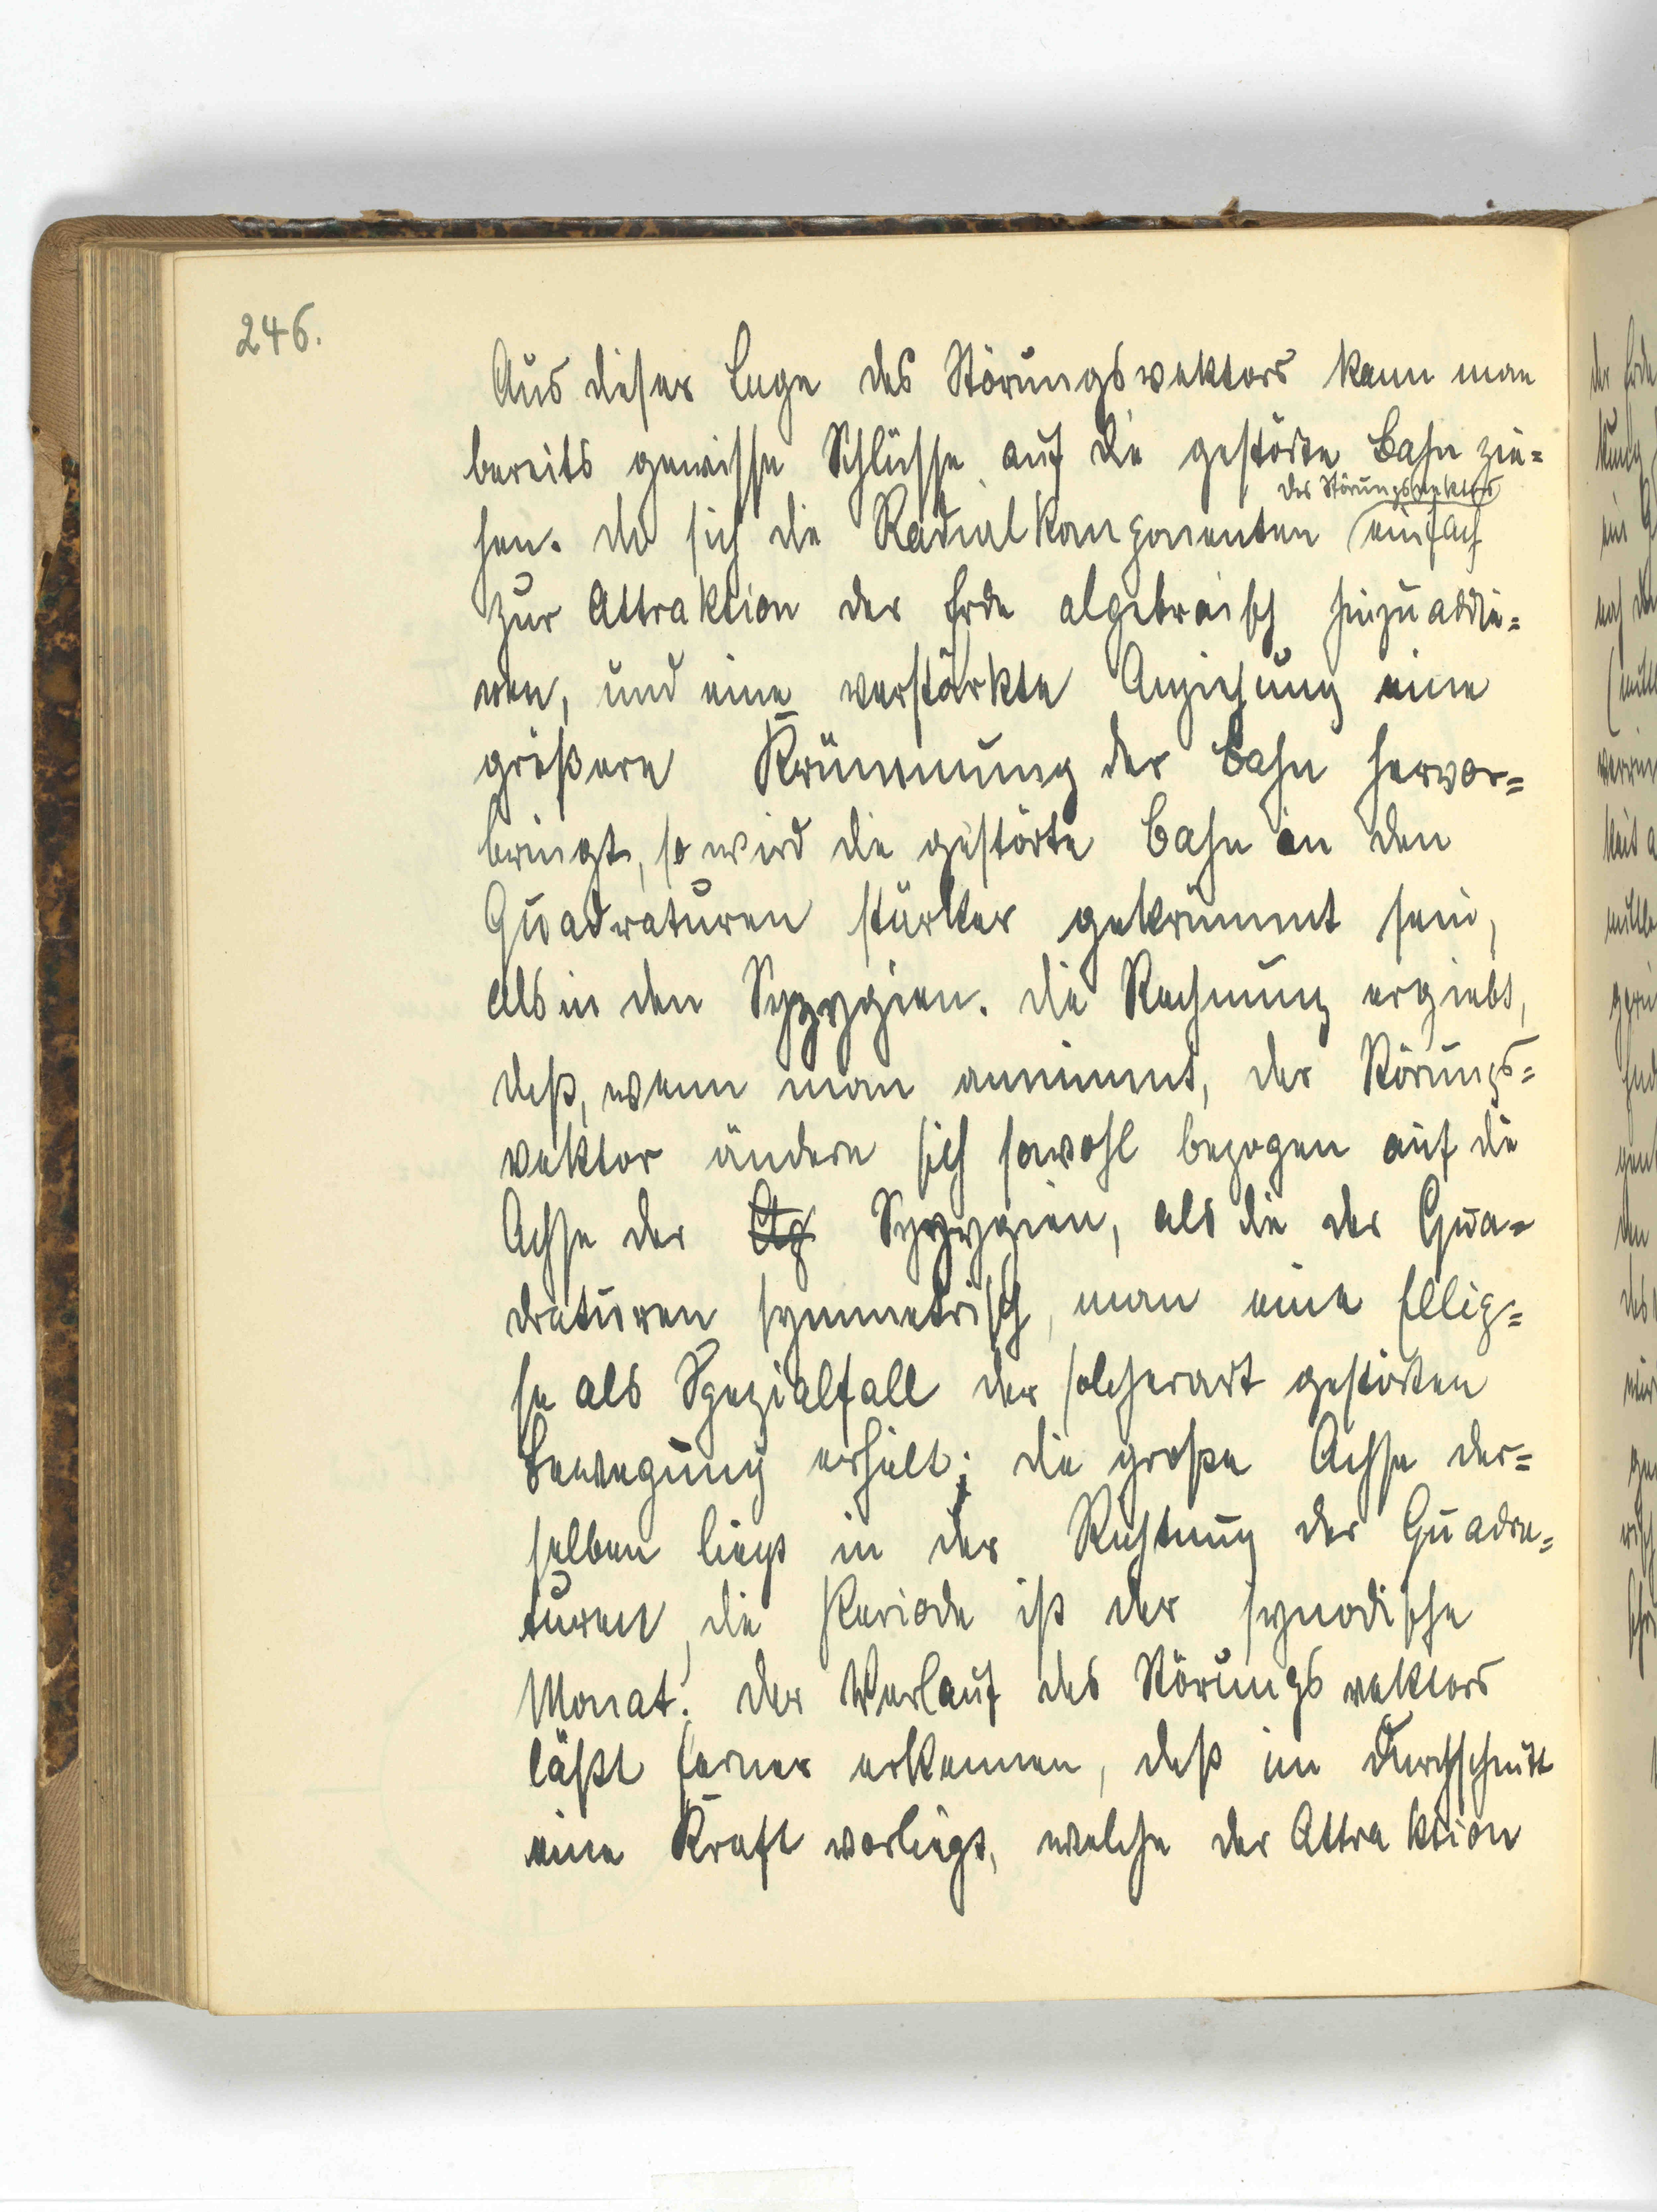 246.
Aus dieser Lage des Störungsvektors kann man
bereits gewisse Schlüsse auf die gestörte Bahn zie=
des Störungsvektors
hen. Da sich die Radialkomponenten einfach
zur Attraktion der Erde algebraisch hinzuaddie=
ren, und eine verstärkte Anziehung eine
größere Krümmung der Bahn hervor=
bringt, so wird die gestörte Bahn in den
Quadraturen stärker gekrümmt sein,
als in den Syzygien. Die Rechnung ergiebt,
daß, wenn man annimmt, der Störungs=
vektor ändere sich sowohl bezogen auf die
Achse der Syzygien, als die der Qua=
draturen symmetrisch, man eine Ellip=
se als Spezialfall der solcherart gestörten
Bewegung erhält; die große Achse der=
selben liegt in der Richtung der Quadra=
turen, die Periode ist der synodische
Monat. Der Verlauf des Störungsvektors
läßt ferner erkennen, daß im Durchschnitt
eine Kraft vorliegt, welche der Attraktion